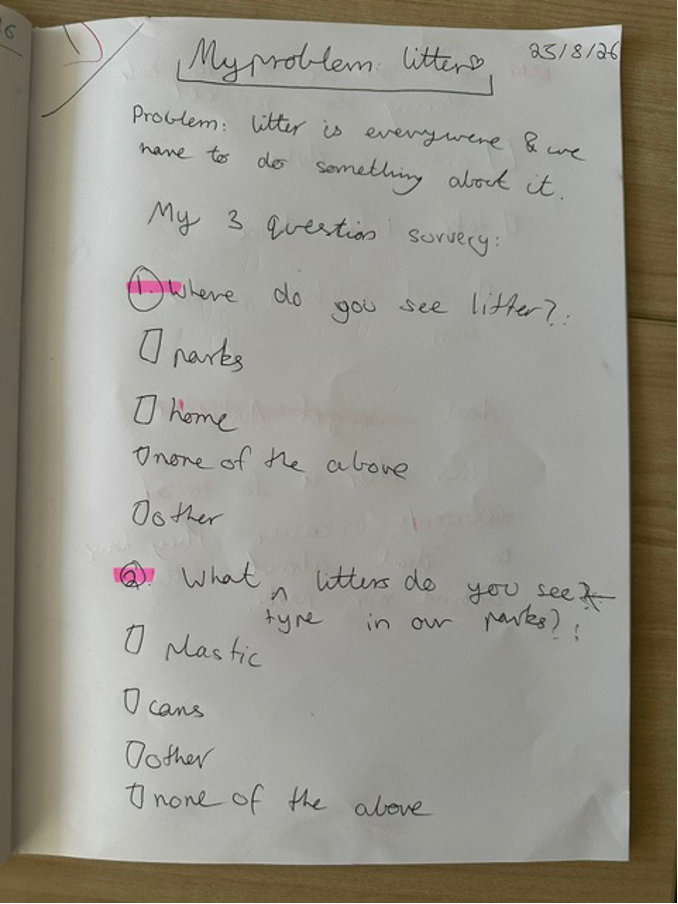 26
My problem: litter♡
25/8/26
Problem: litter is everywere & we
have to do something about it.
My 3 question survery:
1. Where do you see litter?:
parks
home
none of the above
other
2. What ^ litters do you see?
type in our parks?:
Plastic
cans
other
none of the above